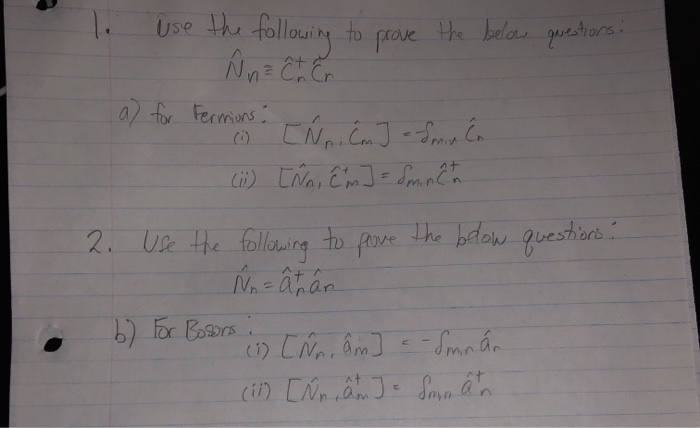 1. Use the following to prove the below questions:
N̂n ≡ ĉn† ĉn
a) for Fermions:
(i) [N̂n, ĉm] = -δm,n ĉn
(ii) [N̂n, ĉ†m] = δm,n ĉ†n
2. Use the following to prove the below questions:
N̂n = â†n ân
b) For Bosons:
(i) [N̂n, âm] = -δm,n ân
(ii) [N̂n, â†m] = δm,n â†n